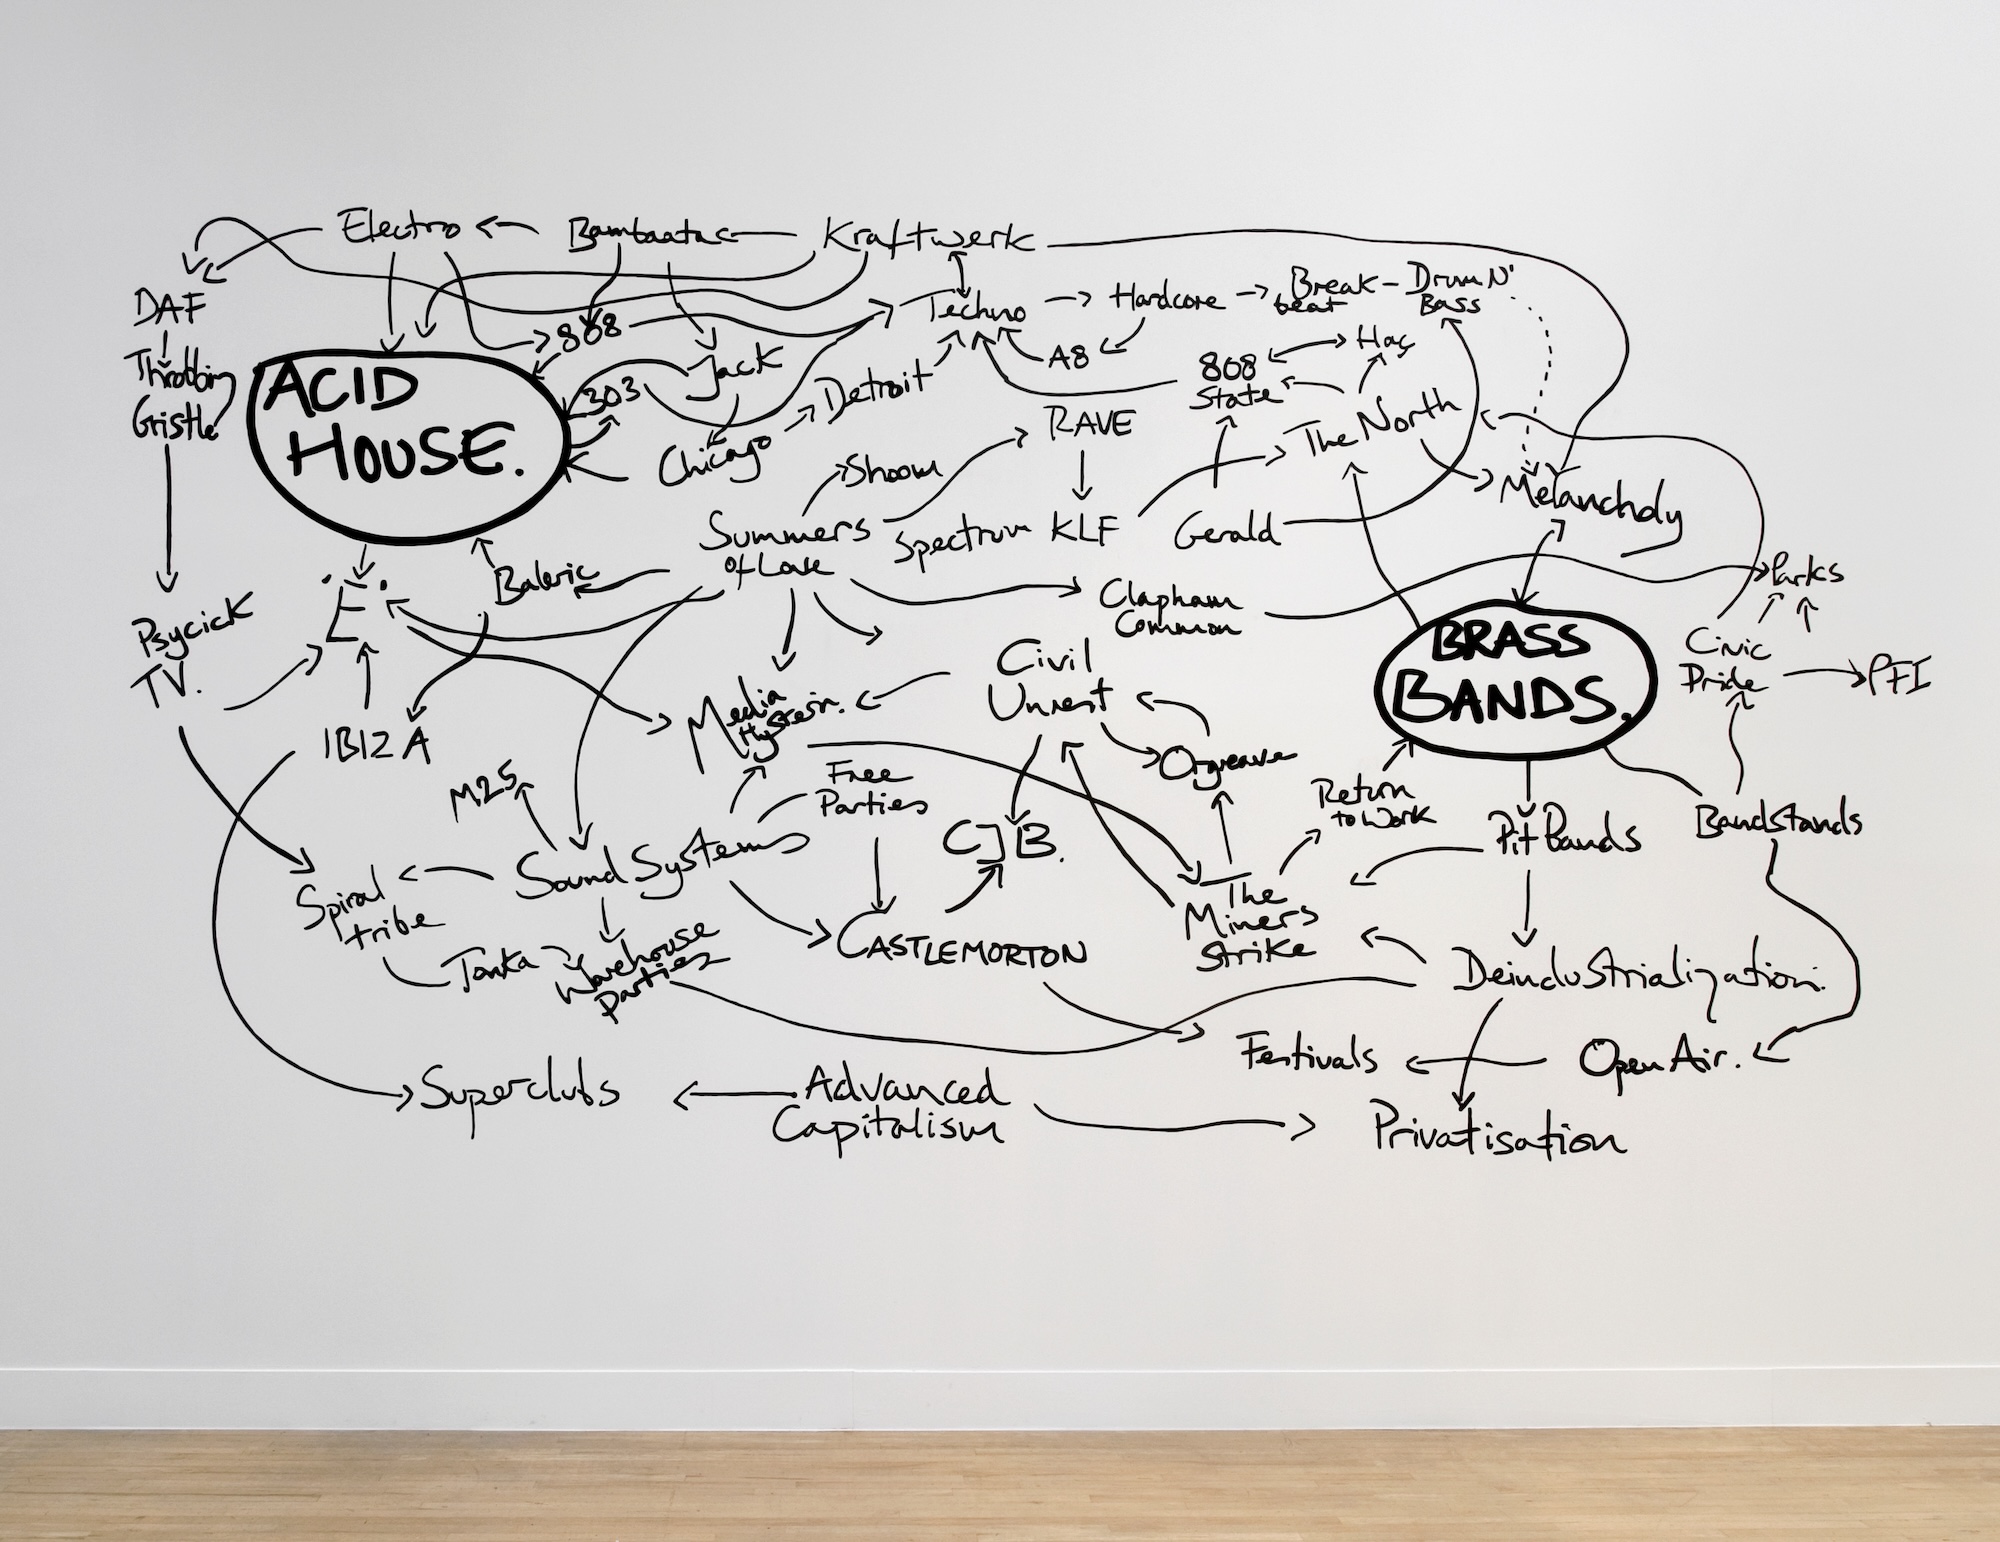 Electro
Bambaataa
Kraftwerk
DAF
Throbbing
Gristle
808
Jack
303
Techno
Hardcore
Break
beat
Drum N'
Bass
A8
808
State
Haç
ACID
HOUSE.
Detroit
Chicago
RAVE
The North
Shoom
Summers
of Love
Spectrum
KLF
Gerald
Melancholy
'E'.
Baleric
Clapham
Common
Parks
Psycick
TV.
Civil
Unrest
BRASS
BANDS.
Civic
Pride
PFI
IBIZA
Media
Orgreave
M25
Free
Parties
Return
to Work
CJB.
Pit Bands
Bandstands
Sound Systems
Spiral
tribe
The
Miners
Strike
Tonka
Warehouse
Parties
CASTLEMORTON
Deindustrialization.
Festivals
Open Air.
Superclubs
Advanced
Capitalism
Privatisation